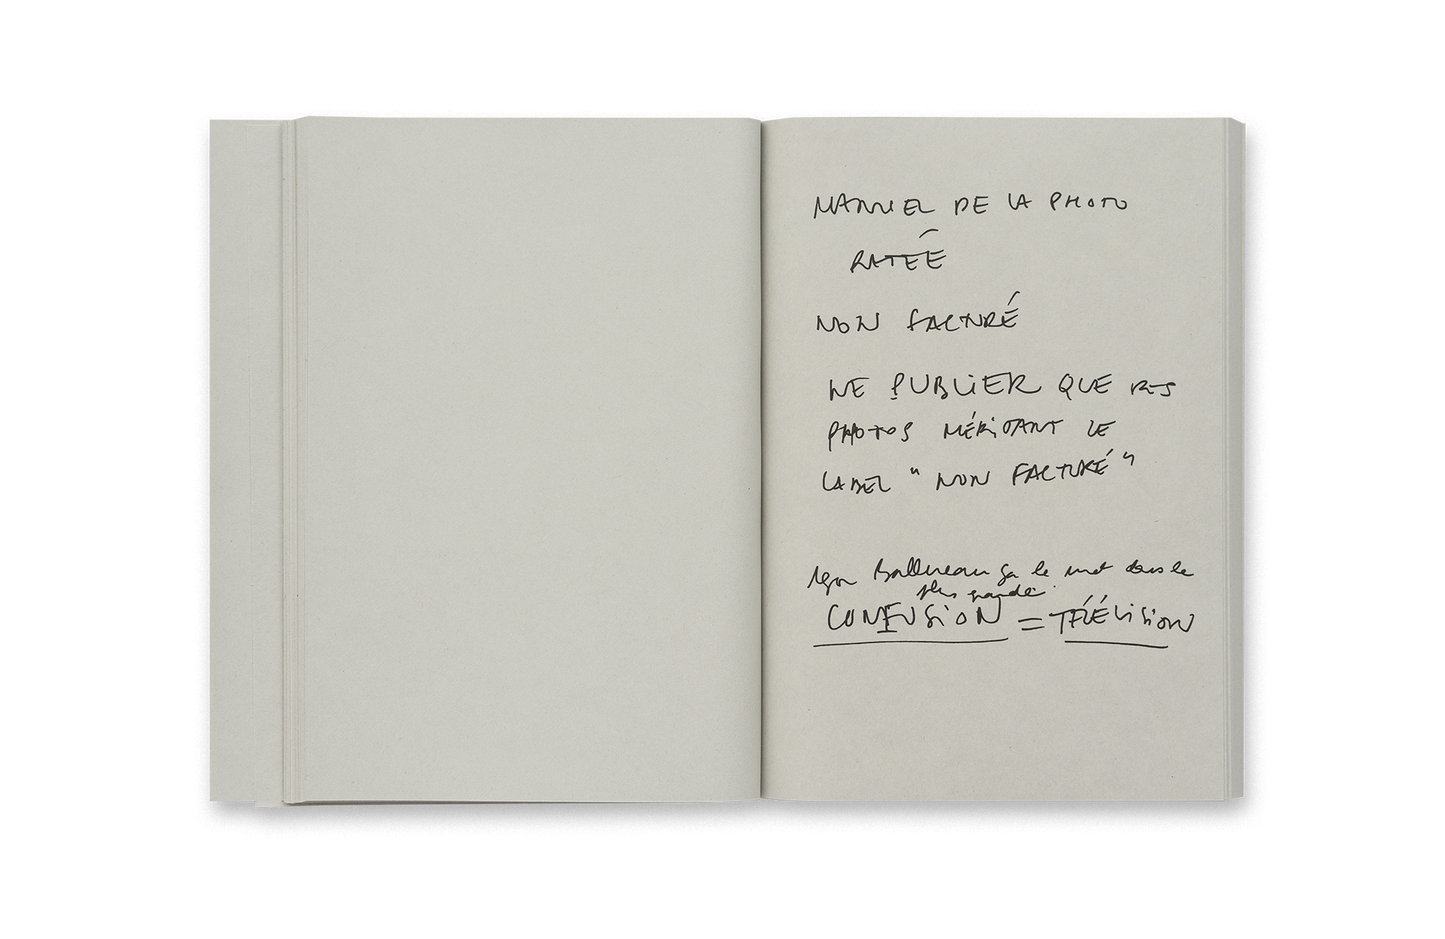 MANUEL DE LA PHOTO
RATÉE
NON FACTURÉ
NE PUBLIER QUE DES
PHOTOS MÉRITANT LE
LABEL “NON FACTURÉ”
Igor ça le met dans la
plus grande
CONFUSION = TÉLÉVISION